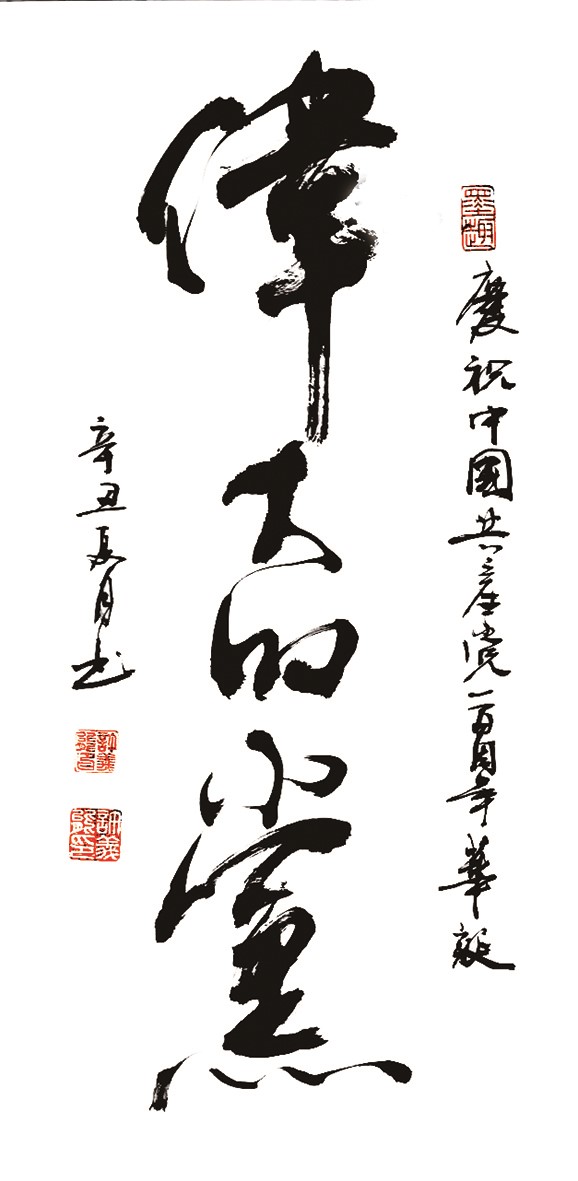 墨趣
慶祝中國共產党一百周年華誕
偉大的黨
辛丑夏月书